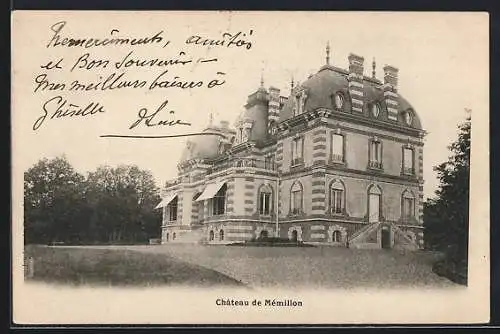 Remerciments, amitiés
et Bon Souvenir -
Mes meilleurs baisers à
Ghiselle
Château de Mémillon